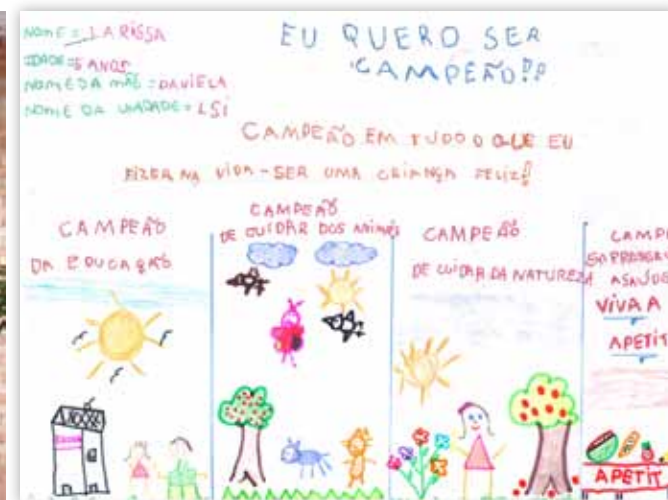 NOME = LARISSA
IDADE = 5 ANOS
NOME DA MÃE = DANIELA
NOME DA UNIDADE = LSI
EU QUERO SER
CAMPEÃO!!
CAMPEÃO EM TUDO O QUE EU
FIZER NA VIDA - SER UMA CRIANÇA FELIZ!
CAMPEÃO
DA EDUCAÇÃO
CAMPEÃO
DE CUIDAR DOS ANIMAIS
CAMPEÃO
DE CUIDAR DA NATUREZA
A SAÚDE
VIVA A
APETIT
APETIT